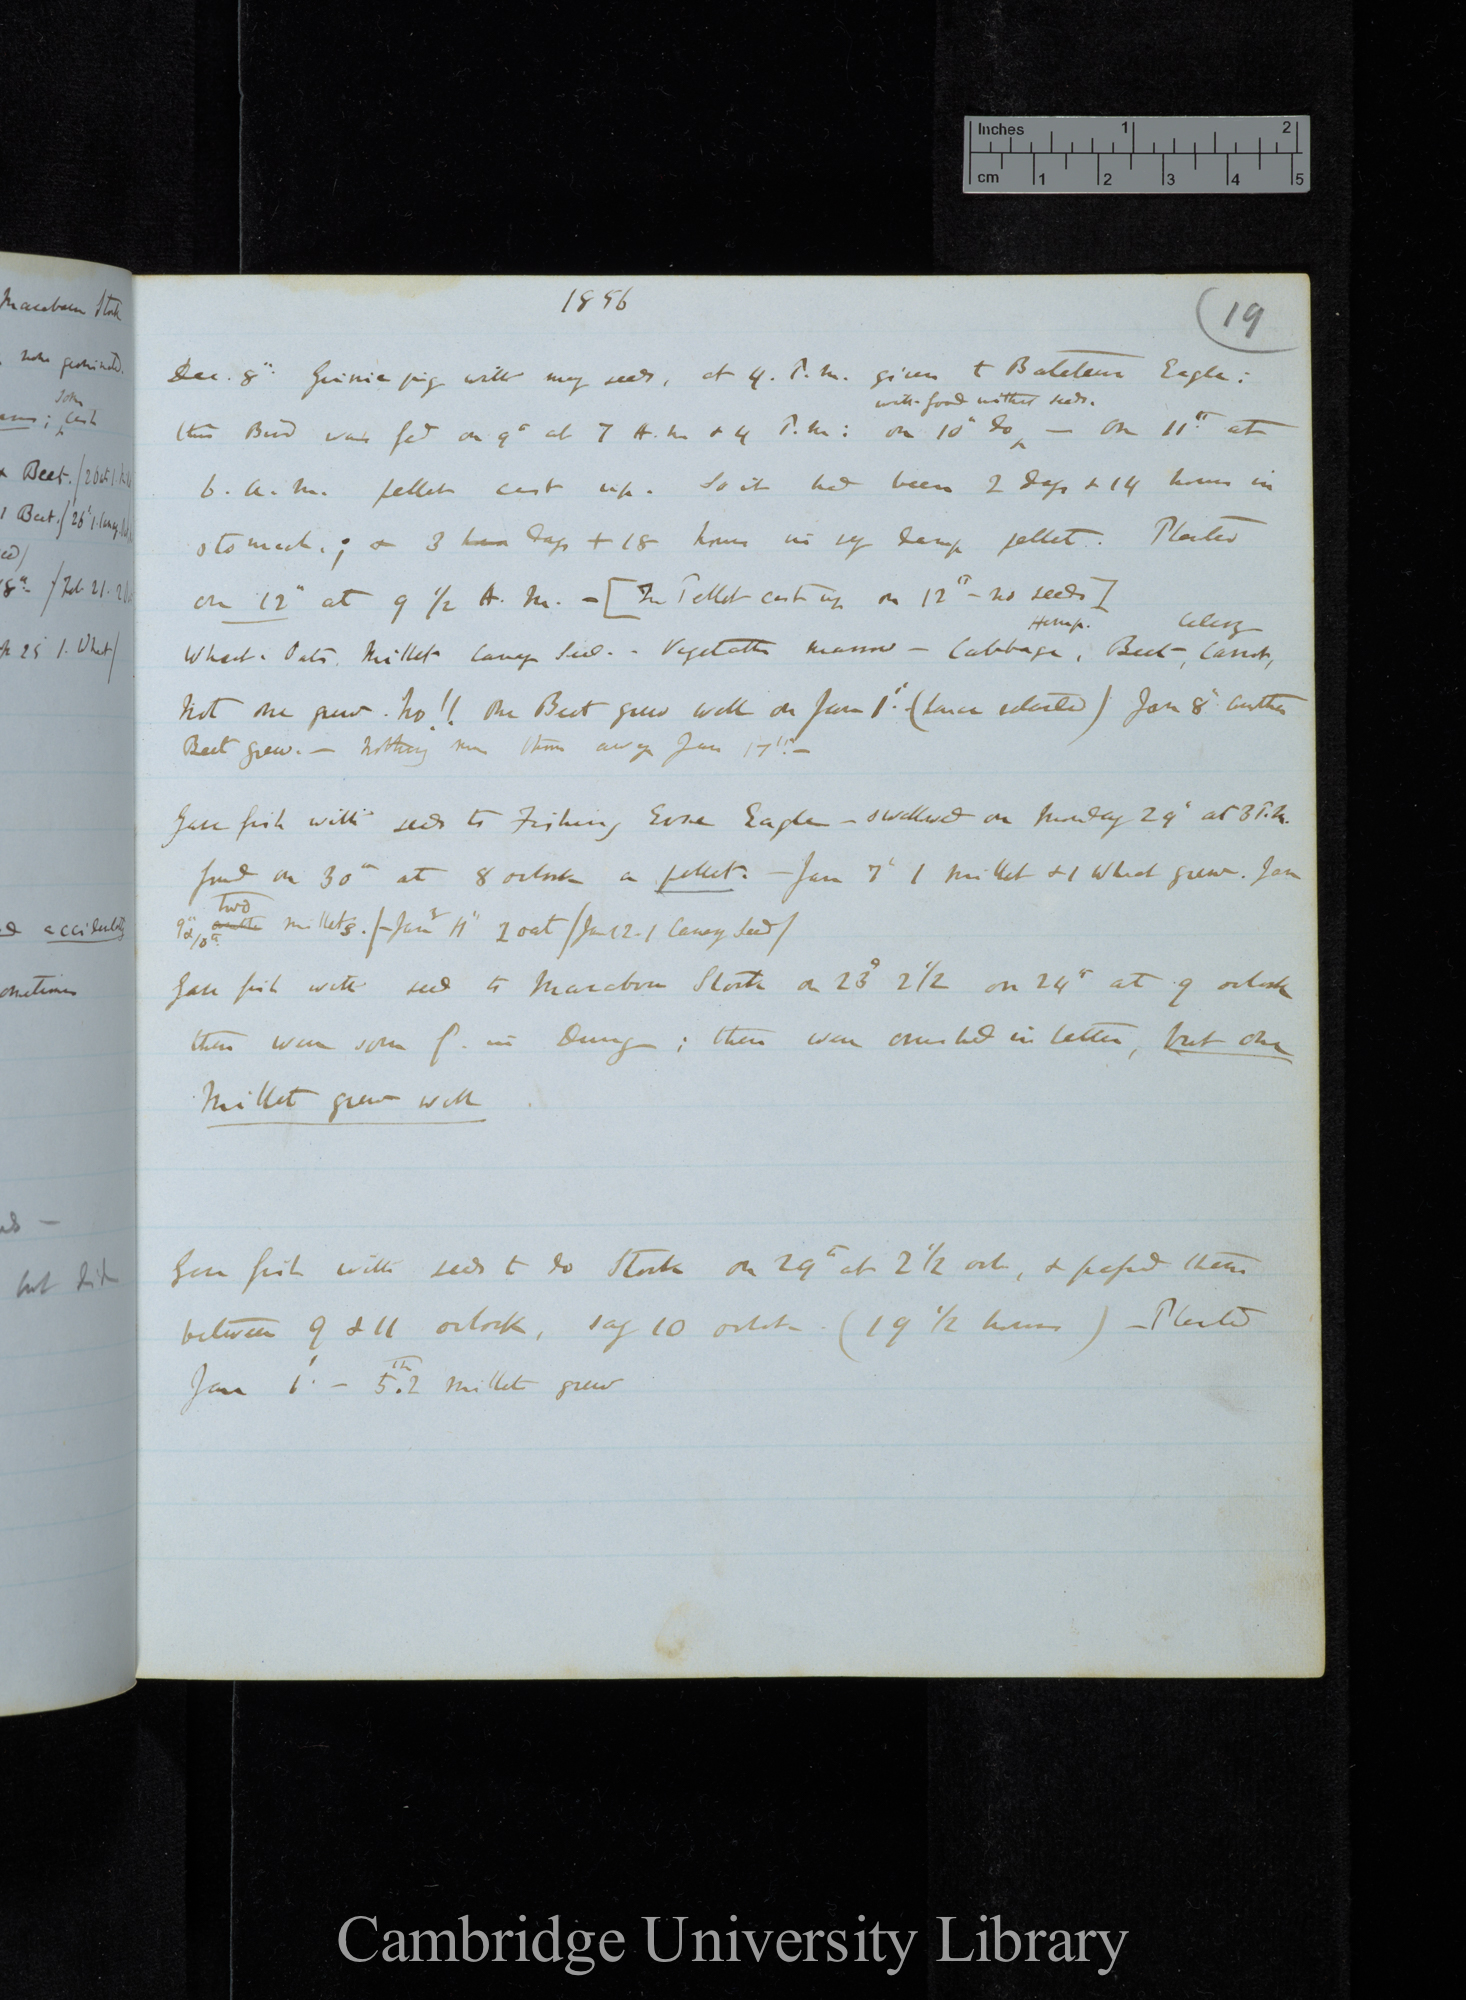 Inches 1 2
cm 1 2 3 4 5
Marabou Stork
germinated.
some
cast
Beet.
1 Beet.
1. Wheat/
accidentally
sometimes
but did
1856
19
Dec. 8th. Guinea pig with my seeds, at 4. P.M. given to Bateleur Eagle:
with food without seeds.
this Bird was fed on 9th at 7 A.M & 4 P.M: on 10th do — On 11th at
6. a.m. pellet cast up. So it had been 2 days & 14 hours in
stomach.; & 3 hours days + 18 hours in my damp pellet. Planted
on 12th at 9 1/2 A.M. — [In Pellet cast up on 12th — no seeds]
Hemp. Celery
Wheat. Oats. Millet Canary Seed. - Vegetable marrow — Cabbage, Beet—, Carrot,
Not one grew. No!! One Beet grew well on Jan 1st. ( ) Jan 8th another
Beet grew. — Nothing more thrown away Jan 17th. —
Gave fish with seeds to Fishing Eagle — swallowed on Monday 29th at 3 P.M.
found on 30th at 8 oclock a pellet. — Jan 7th 1 Millet & 1 Wheat grew. Jan
two
9th & 10th another millets. /— Jan 11th 2 oat / Jan 12. 1 Canary Seed/
Gave fish with seed to Marabou Stork on 23d 2 1/2 on 24th at 9 oclock
there were some in Dung; these were crushed in latter, but one
Millet grew well
Gave fish with seeds to do Stork on 29th at 2 1/2 ock, & passed them
between 9 & 11 oclock, say 10 oclock (19 1/2 hours) — Planted
Jan 1st. — 5th. 2 Millet grew
Cambridge University Library